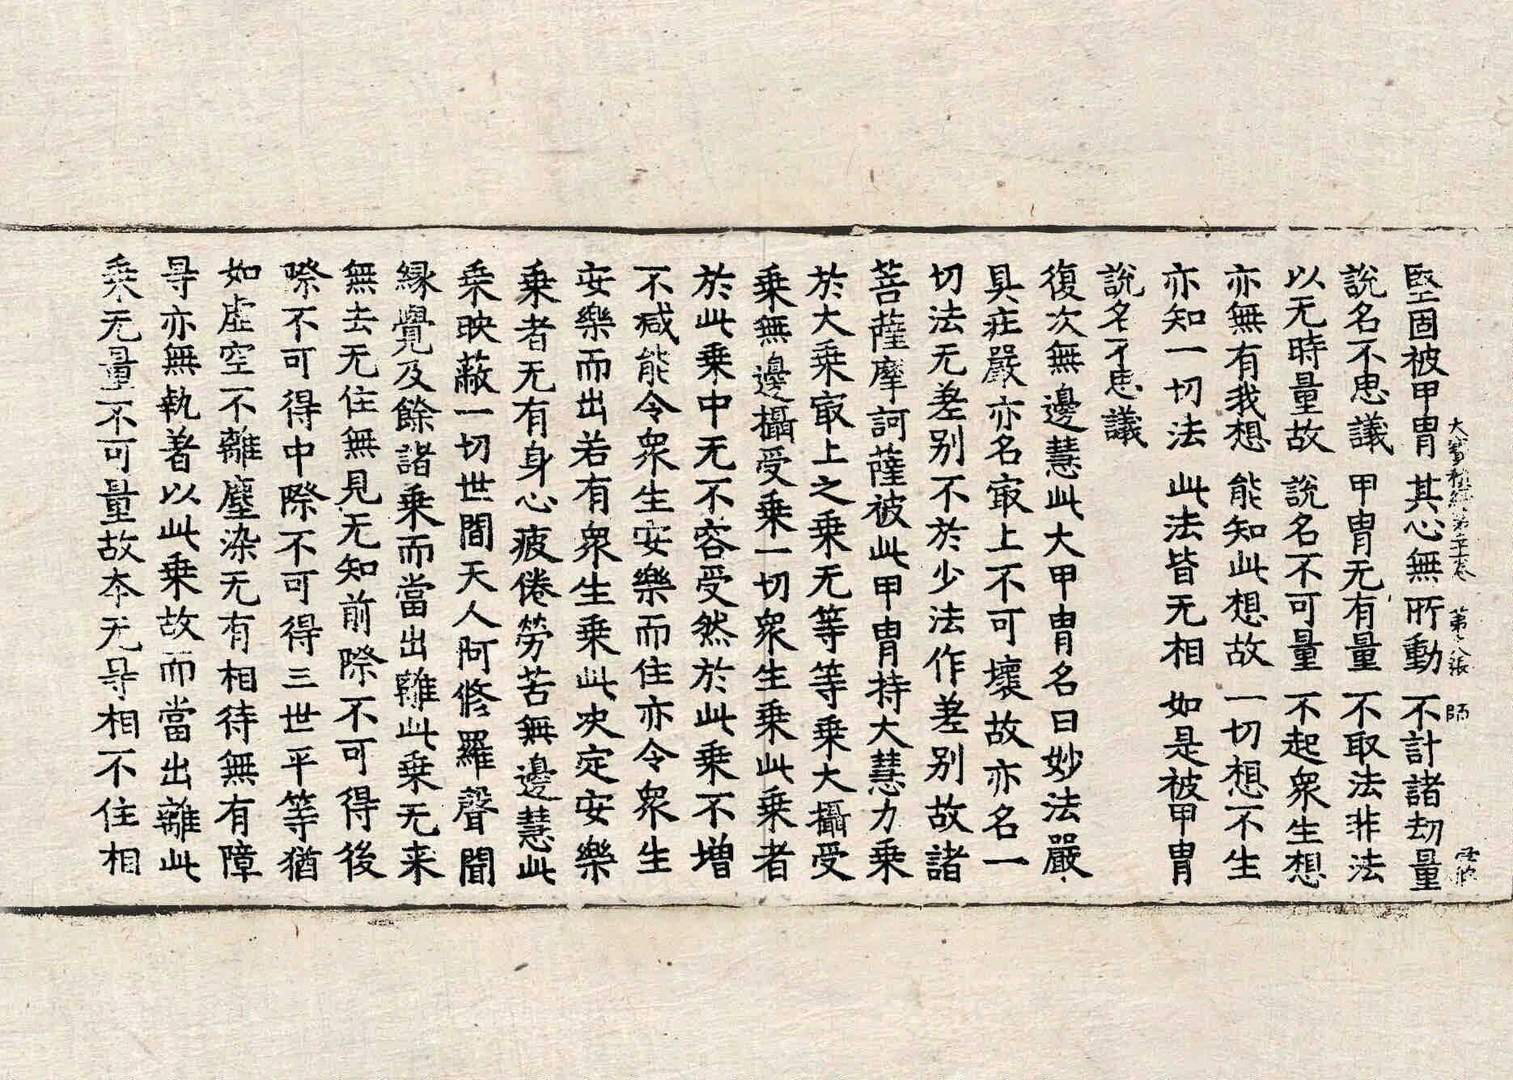 堅固被甲冑　其心無所動　不計諸劫量
大寶積經第二十二卷　第八張　師
說名不思議　甲冑无有量　不取法非法
以无時量故　說名不可量　不起衆生想
亦無有我想　能知此想故　一切想不生
亦知一切法　此法皆无相　如是被甲冑
說名不思議
復次無邊慧此大甲冑名曰妙法嚴
具莊嚴亦名㝡上不可壞故亦名一
切法无差别不於少法作差别故諸
菩薩摩訶薩被此甲冑持大慧力乗
於大乗㝡上之乗无等等乗大攝受
乗無邊攝受乗一切衆生乗此乗者
於此乗中无不容受然於此乗不增
不減能令衆生安樂而住亦令衆生
安樂而出若有衆生乗此决定安樂
乗者无有身心疲倦勞苦無邊慧此
乗映蔽一切世間天人阿修羅聲聞
縁覺及餘諸乗而當出離此乗无来
無去无住無見无知前際不可得後
際不可得中際不可得三世平等猶
如虛空不離塵染无有相待無有障
㝵亦無執著以此乗故而當出離此
乗无量不可量故夲无㝵相不住相